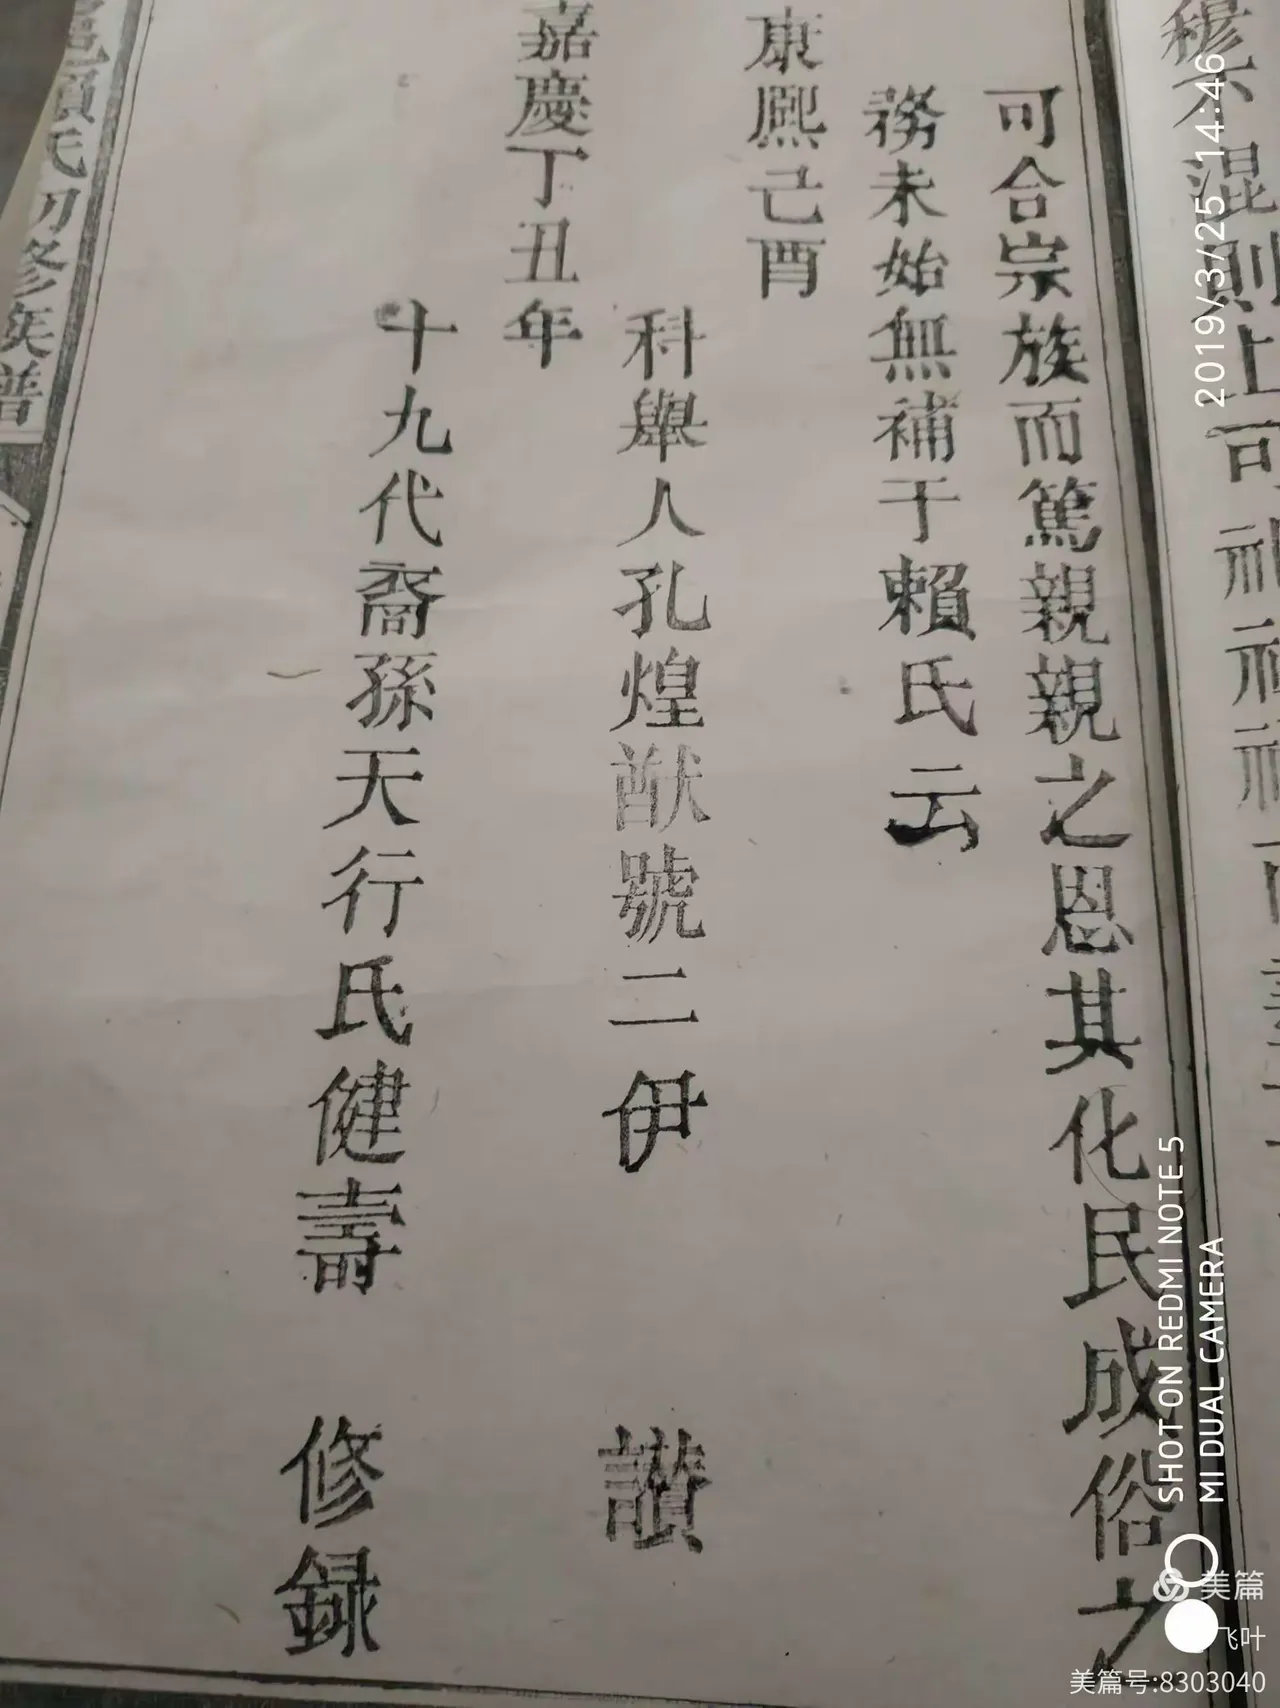 穆不混則上可
可合宗族而篤親親之恩其化民成俗之
務未始無補于賴氏云
康熙己酉
科舉人孔煌猷號二伊 讚
嘉慶丁丑年
十九代裔孫天行氏健壽 修録
邑賴氏初修族譜
2019/3/25 14:46
SHOT ON REDMI NOTE 5
MI DUAL CAMERA
美篇
飞叶
美篇号:8303040